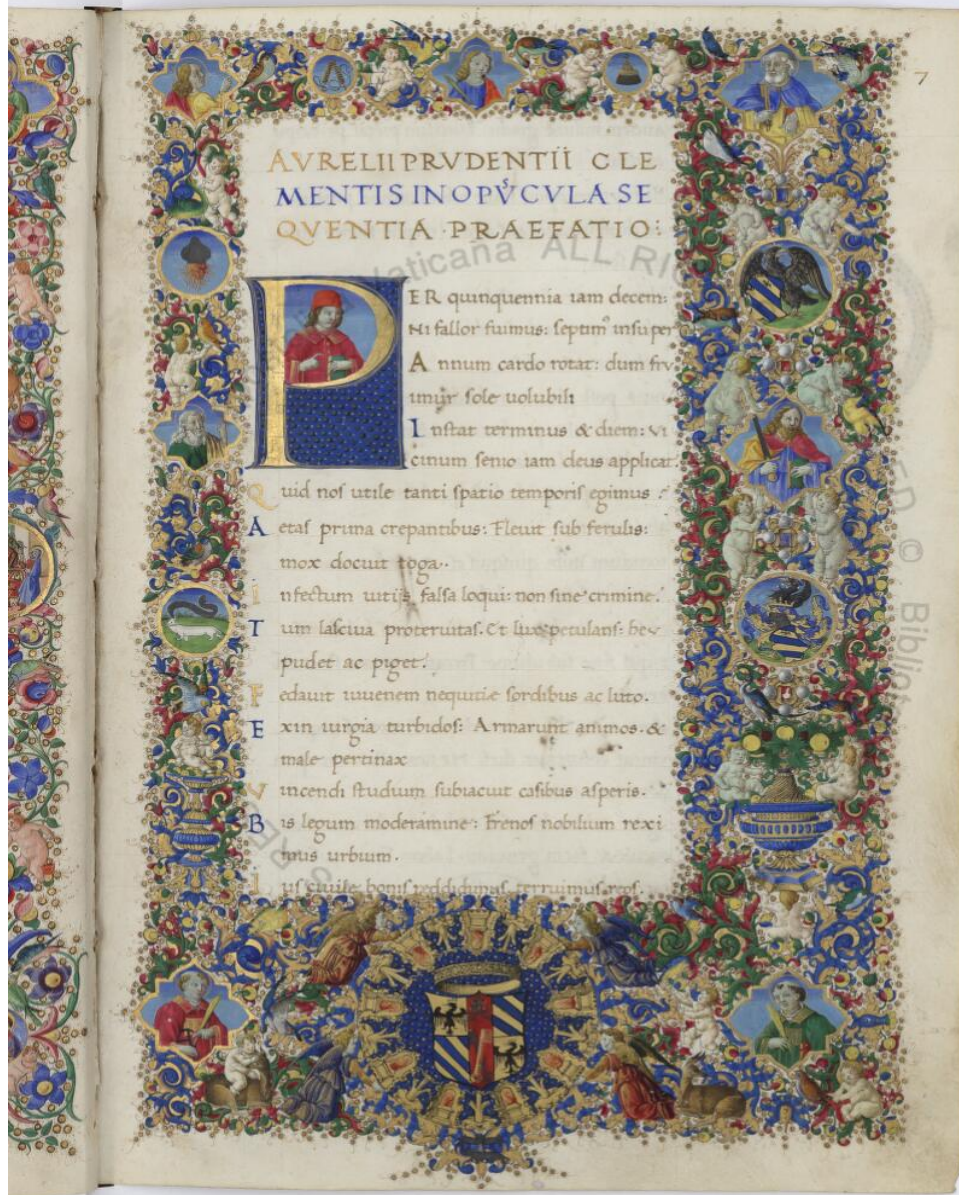 7
AVRELII PRVDENTII CLE
MENTIS IN OPVSCVLA SE
QVENTIA PRAEFATIO:
PER quinquennia iam decem:
Ni fallor fuimus: septimꝰ insuper
Annum cardo rotat: dum fru
imur sole uolubili
Instat terminus & diem: vi
cinum senio iam deus applicat.
Quid nos utile tanti spatio temporis egimus
Aetas prima crepantibus: Fleuit sub ferulis:
mox docuit toga.
infectum uitiis falsa loqui: non sine crimine.
Tum lasciua proteruitas. Et luxꝰ petulans: heu
pudet ac piget.
Fedauit iuuenem nequitie sordibus ac luto.
Exin iurgia turbidos: Armarunt animos. &
male pertinax
Vincendi studium subiacuit casibus asperis.
Bis legum moderamine: Frenos nobilium rexi
mus urbium.
ius ciuile bonis reddidimus. terruimus reos.
Vaticana ALL RI
© Bibliot